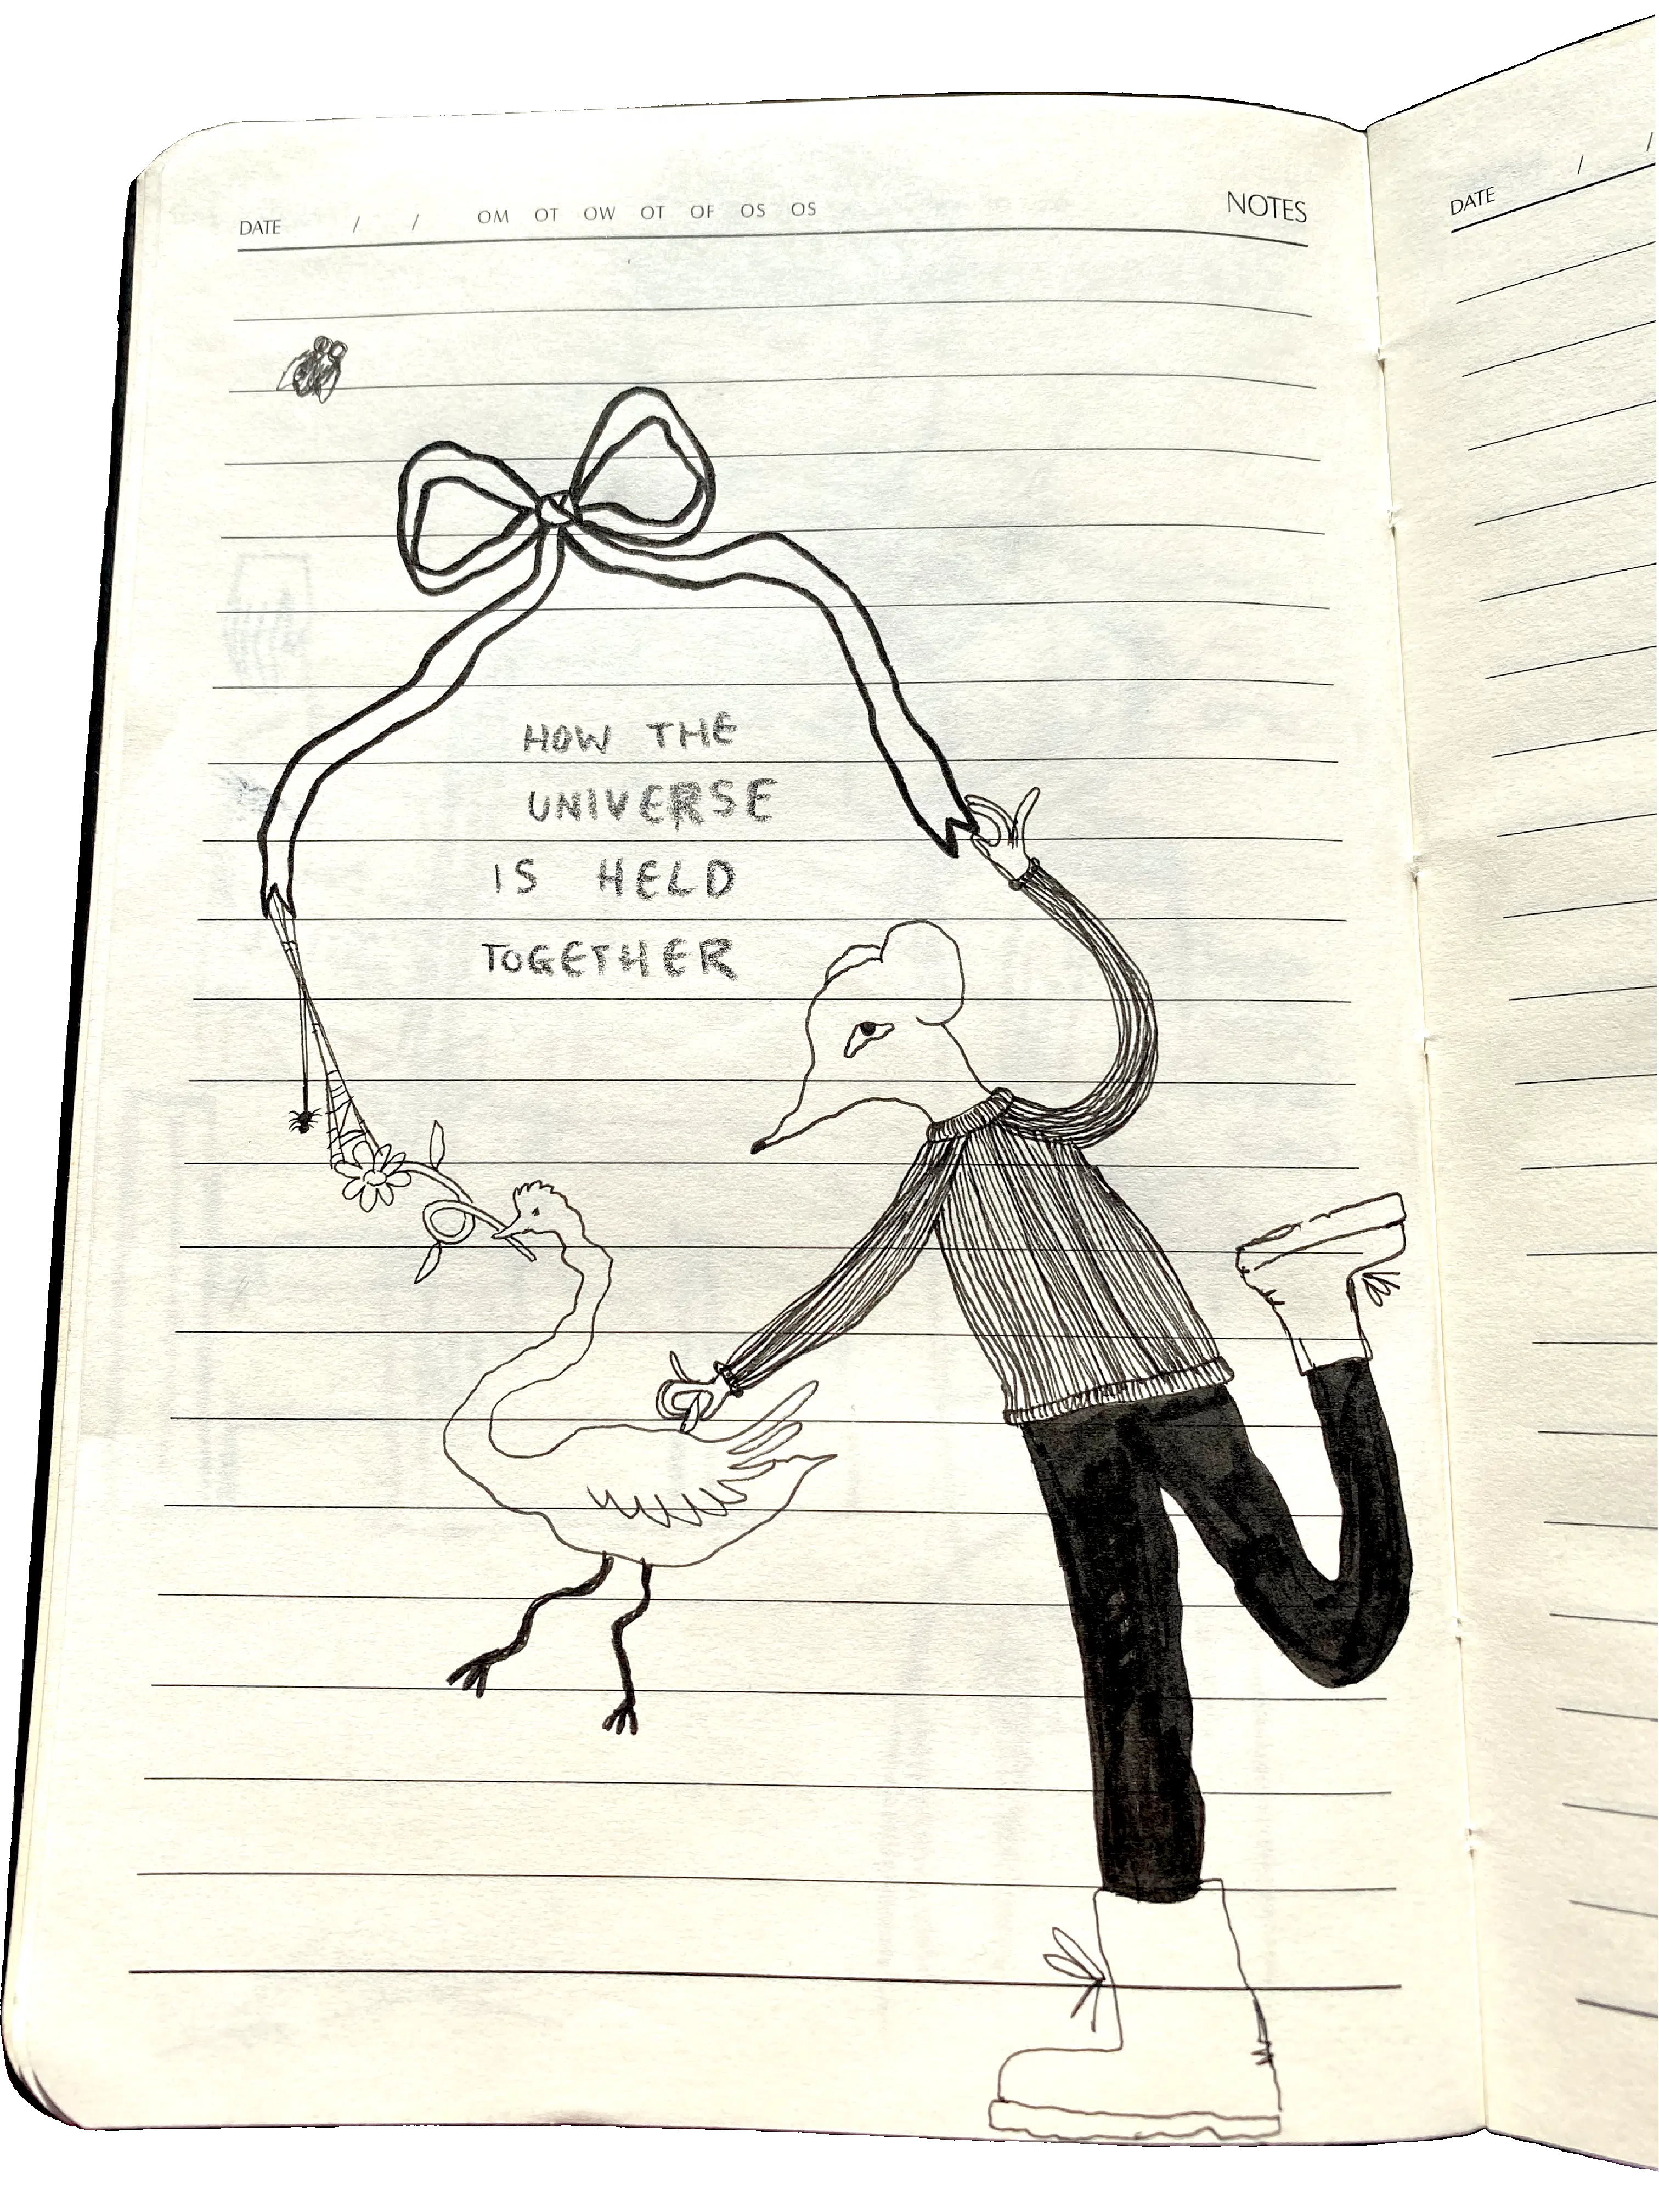 DATE / / OM OT OW OT OF OS OS NOTES
HOW THE
UNIVERSE
IS HELD
TOGETHER
DATE / /